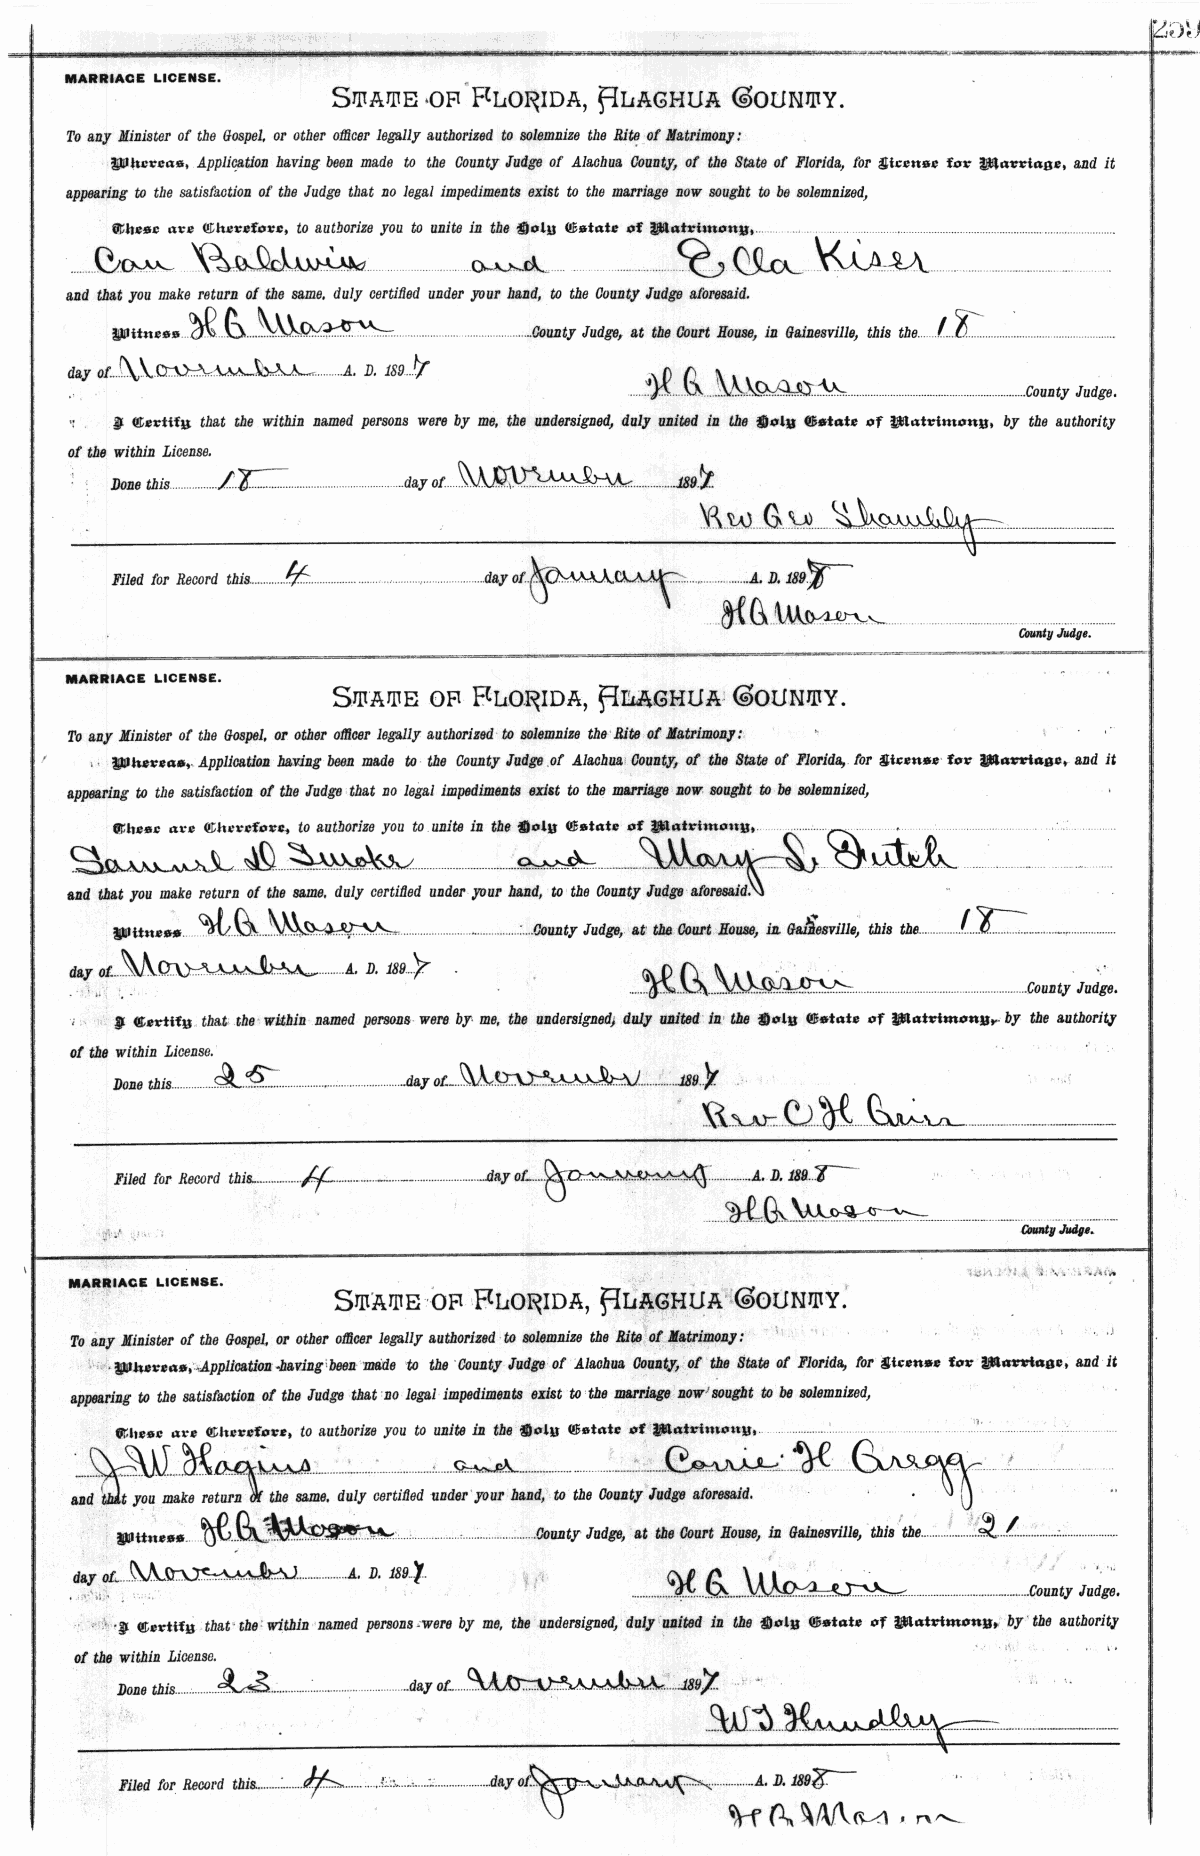 259
MARRIAGE LICENSE.
STATE OF FLORIDA, ALACHUA COUNTY.
To any Minister of the Gospel, or other officer legally authorized to solemnize the Rite of Matrimony:
Whereas, Application having been made to the County Judge of Alachua County, of the State of Florida, for License for Marriage, and it
appearing to the satisfaction of the Judge that no legal impediments exist to the marriage now sought to be solemnized,
These are Therefore, to authorize you to unite in the Holy Estate of Matrimony,
Can Baldwin and Ella Kiser
and that you make return of the same, duly certified under your hand, to the County Judge aforesaid.
Witness H G Mason County Judge, at the Court House, in Gainesville, this the 18
day of November A. D. 1897
H G Mason County Judge.
I Certify that the within named persons were by me, the undersigned, duly united in the Holy Estate of Matrimony, by the authority
of the within License.
Done this 18 day of November 1897
Rev Geo Shambly
Filed for Record this 4 day of January A. D. 1898
H G Mason
County Judge.
MARRIAGE LICENSE.
STATE OF FLORIDA, ALACHUA COUNTY.
To any Minister of the Gospel, or other officer legally authorized to solemnize the Rite of Matrimony:
Whereas, Application having been made to the County Judge of Alachua County, of the State of Florida, for License for Marriage, and it
appearing to the satisfaction of the Judge that no legal impediments exist to the marriage now sought to be solemnized,
These are Therefore, to authorize you to unite in the Holy Estate of Matrimony,
Samuel D Smoke and Mary L Futch
and that you make return of the same, duly certified under your hand, to the County Judge aforesaid.
Witness H G Mason County Judge, at the Court House, in Gainesville, this the 18
day of November A. D. 1897
H G Mason County Judge.
I Certify that the within named persons were by me, the undersigned, duly united in the Holy Estate of Matrimony, by the authority
of the within License.
Done this 25 day of November 1897
Rev C H
Filed for Record this 4 day of January A. D. 1898
H G Mason
County Judge.
MARRIAGE LICENSE.
STATE OF FLORIDA, ALACHUA COUNTY.
To any Minister of the Gospel, or other officer legally authorized to solemnize the Rite of Matrimony:
Whereas, Application having been made to the County Judge of Alachua County, of the State of Florida, for License for Marriage, and it
appearing to the satisfaction of the Judge that no legal impediments exist to the marriage now sought to be solemnized,
These are Therefore, to authorize you to unite in the Holy Estate of Matrimony,
J W Hagins and Carrie H Gregg
and that you make return of the same, duly certified under your hand, to the County Judge aforesaid.
Witness H G Mason County Judge, at the Court House, in Gainesville, this the 21
day of November A. D. 1897
H G Mason County Judge.
I Certify that the within named persons were by me, the undersigned, duly united in the Holy Estate of Matrimony, by the authority
of the within License.
Done this 23 day of November 1897
W T Hundley
Filed for Record this 4 day of January A. D. 1898
H G Mason